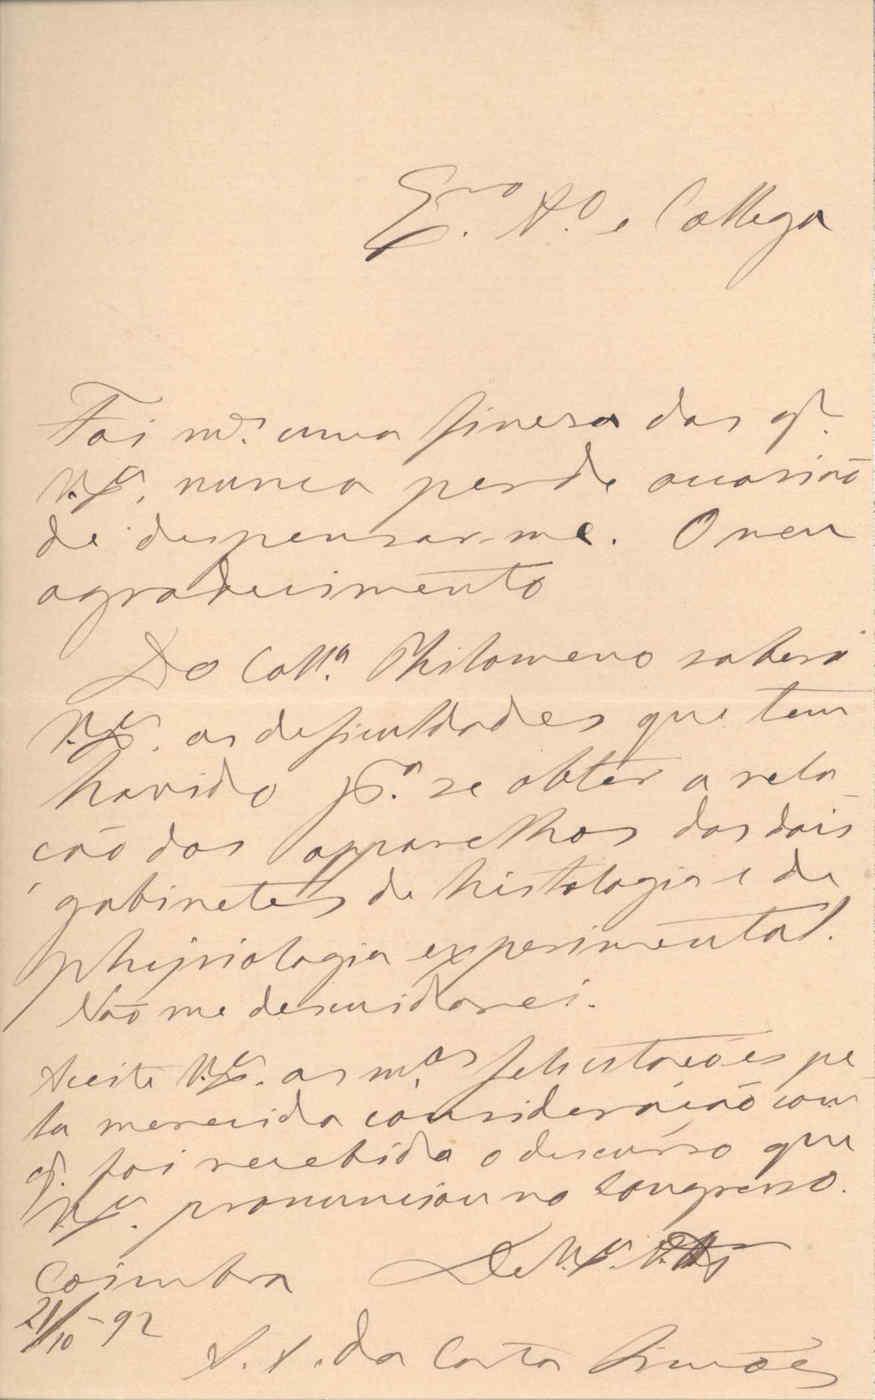 Exmo. Ao. e Collega
Foi mais uma finesa das q.
V. Exa. nunca perde occasião
de dispensar-me. O meu
agradecimento
Do Colla. Philomeno saberá
V. Exa. as deficuldades que tem
havido pa. se obter a rela
ção dos apparelhos dos dois
gabinetes de histologia e de
physiologia experimental.
Não me descuidarei.
Aceite V. Exa. as mas. felicitações pe
la merecida consideração com
q. foi recebida o discurso que
V. Exa. pronunciou no Congresso.
Coimbra De V. Exa.
21/10-92
A. A. da Costa Simões